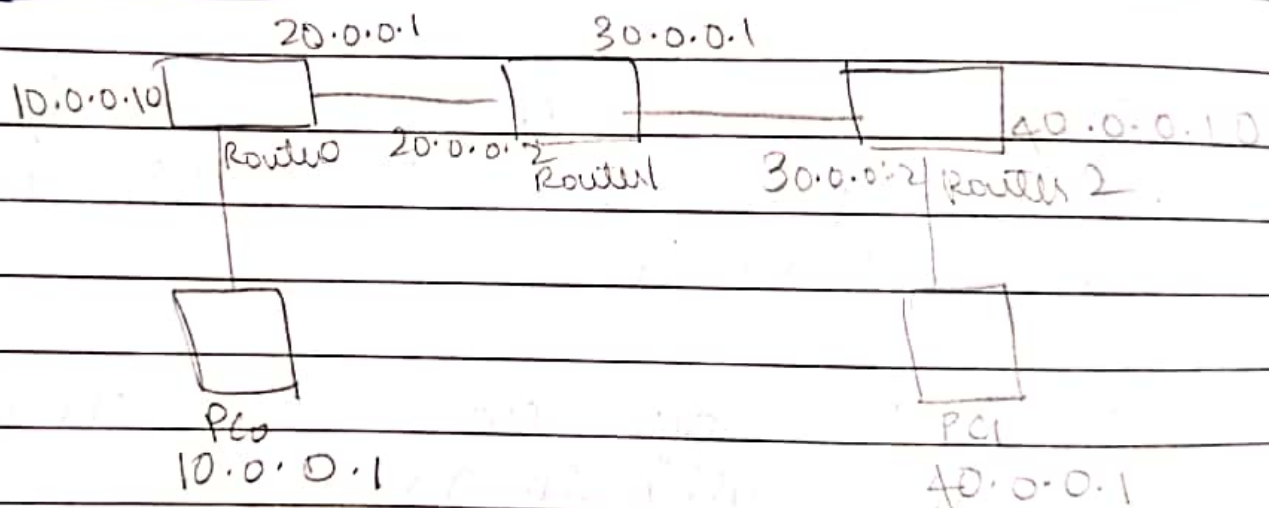 20.0.0.1 30.0.0.1
10.0.0.10 40.0.0.10
Router0 20.0.0.2 Router1 30.0.0.2 Router 2
PC0 PC1
10.0.0.1 40.0.0.1